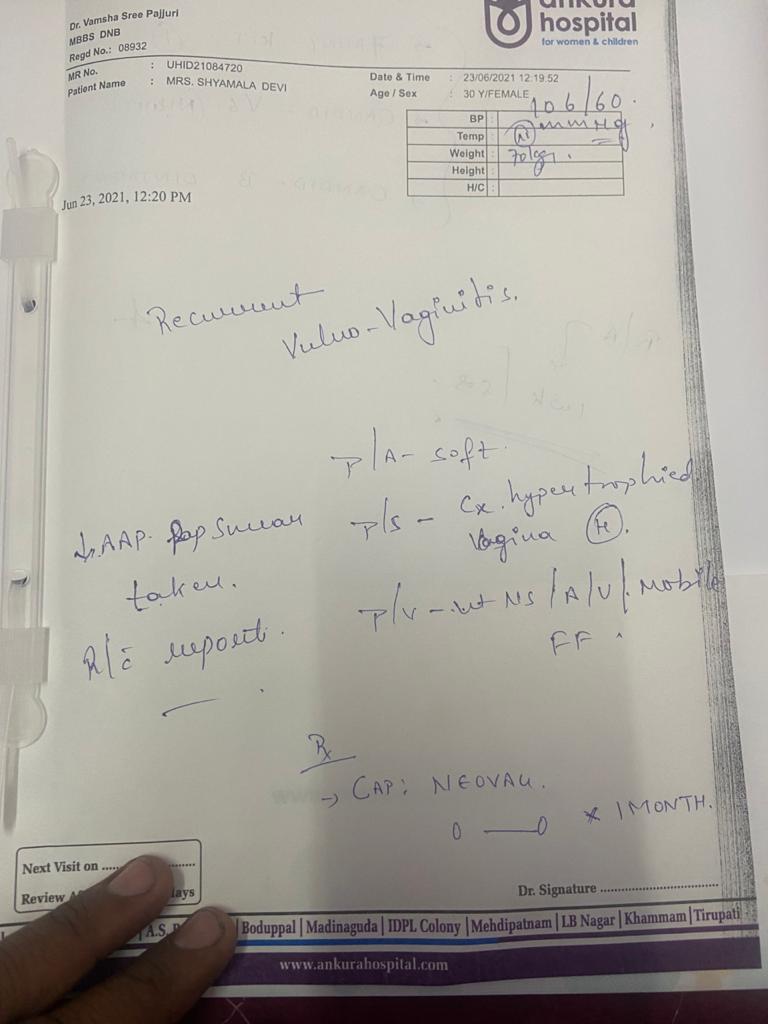 Dr. Vamsha Sree Pajjuri
MBBS DNB
Regd No.: 08932
ankura
hospital
for women & children
MR No. : UHID21084720
Patient Name : MRS. SHYAMALA DEVI
Date & Time : 23/06/2021 12:19:52
Age / Sex : 30 Y/FEMALE
BP : 106/60 mmHg
Temp :
Weight : 70kg.
Height :
H/C :
Jun 23, 2021, 12:20 PM
Recurrent
Vulvo-Vaginitis.
P/A - soft
P/S - Cx. hypertrophied
Vagina
AAP. Pap Smear
taken.
P/V - NS/A/V/. Mobile
FF.
R/c̄ report.
Rx
→ CAP: NEOVAG.
0 — 0 × 1 MONTH.
Next Visit on
Review
Days
Dr. Signature
A.S. | Boduppal | Madinaguda | IDPL Colony | Mehdipatnam | LB Nagar | Khammam | Tirupati
www.ankurahospital.com